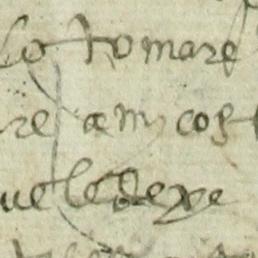 lo tomare
re a mi cos
que le dexe